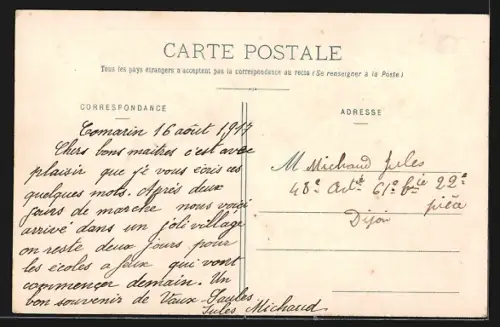 CARTE POSTALE
Tous les pays étrangers n'acceptent pas la correspondance au recto (Se renseigner à la Poste)
CORRESPONDANCE
ADRESSE
Comarin 16 août 1917
Chers bons maitres c'est avec
plaisir que je vous écris ces
quelques mots. Après deux
jours de marche nous voici
arrivé dans un joli village
on reste deux jours pour
les écoles a feux qui vont
commencer demain. Un
bon souvenir de Vaux-Saules
Jules Michaud
M Michaud Jules
48e Artie 61e bie 22e
pièce
Dijon